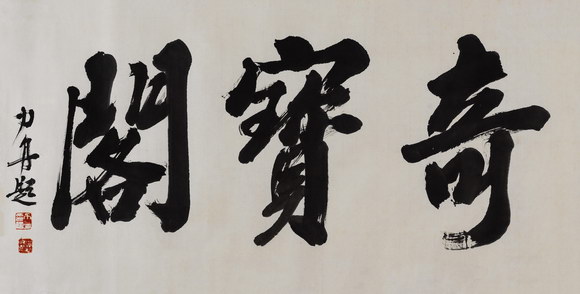 奇寶閣
力舟題